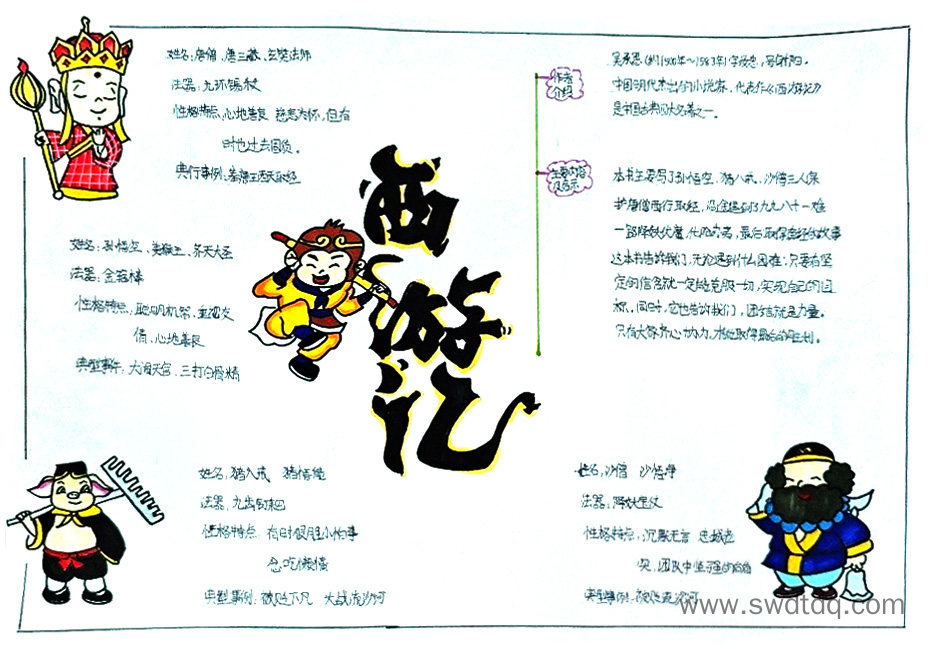 姓名:唐僧、唐三藏、玄奘法师
法器:九环锡杖
性格特点:心地善良 慈悲为怀,但有
时也过去固质。
典行事例:奉唐王西天取经
姓名:孙悟空、美猴王、齐天大圣
法器:金箍棒
性格特点:聪明机智、重视友
情、心地善良
典型事件:大闹天宫、三打白骨精
西游记
作者
介绍
吴承恩(约1500年~1583年)字汝忠,号射阳。
中国明代杰出的小说家,代表作《西游记》
是中国古典四大名著之一。
主要内容
及启示
本书主要写了孙悟空、猪八戒、沙僧三人保
护唐僧西行取经,沿途遇到了九九八十一难
一路降妖伏魔,化险为夷,最后取得真经的故事
这本书告诉我们,无论遇到什么困难,只要有坚
定的信念就一定能克服一切,实现自己的目
标,同时,它也告诉我们,团结就是力量。
只有大家齐心协力,才能取得最后的胜利。
姓名:猪八戒 猪悟能
法器:九齿钉耙
性格特点 有时很胆小怕事
贪吃懒惰
典型事例:被贬下凡 大战流沙河
姓名:沙僧 沙悟净
法器:降妖宝杖
性格特点:沉默无言 忠诚老
实,团队中坚强的后盾
典型事例:被贬流沙河
www.swdtdq.com